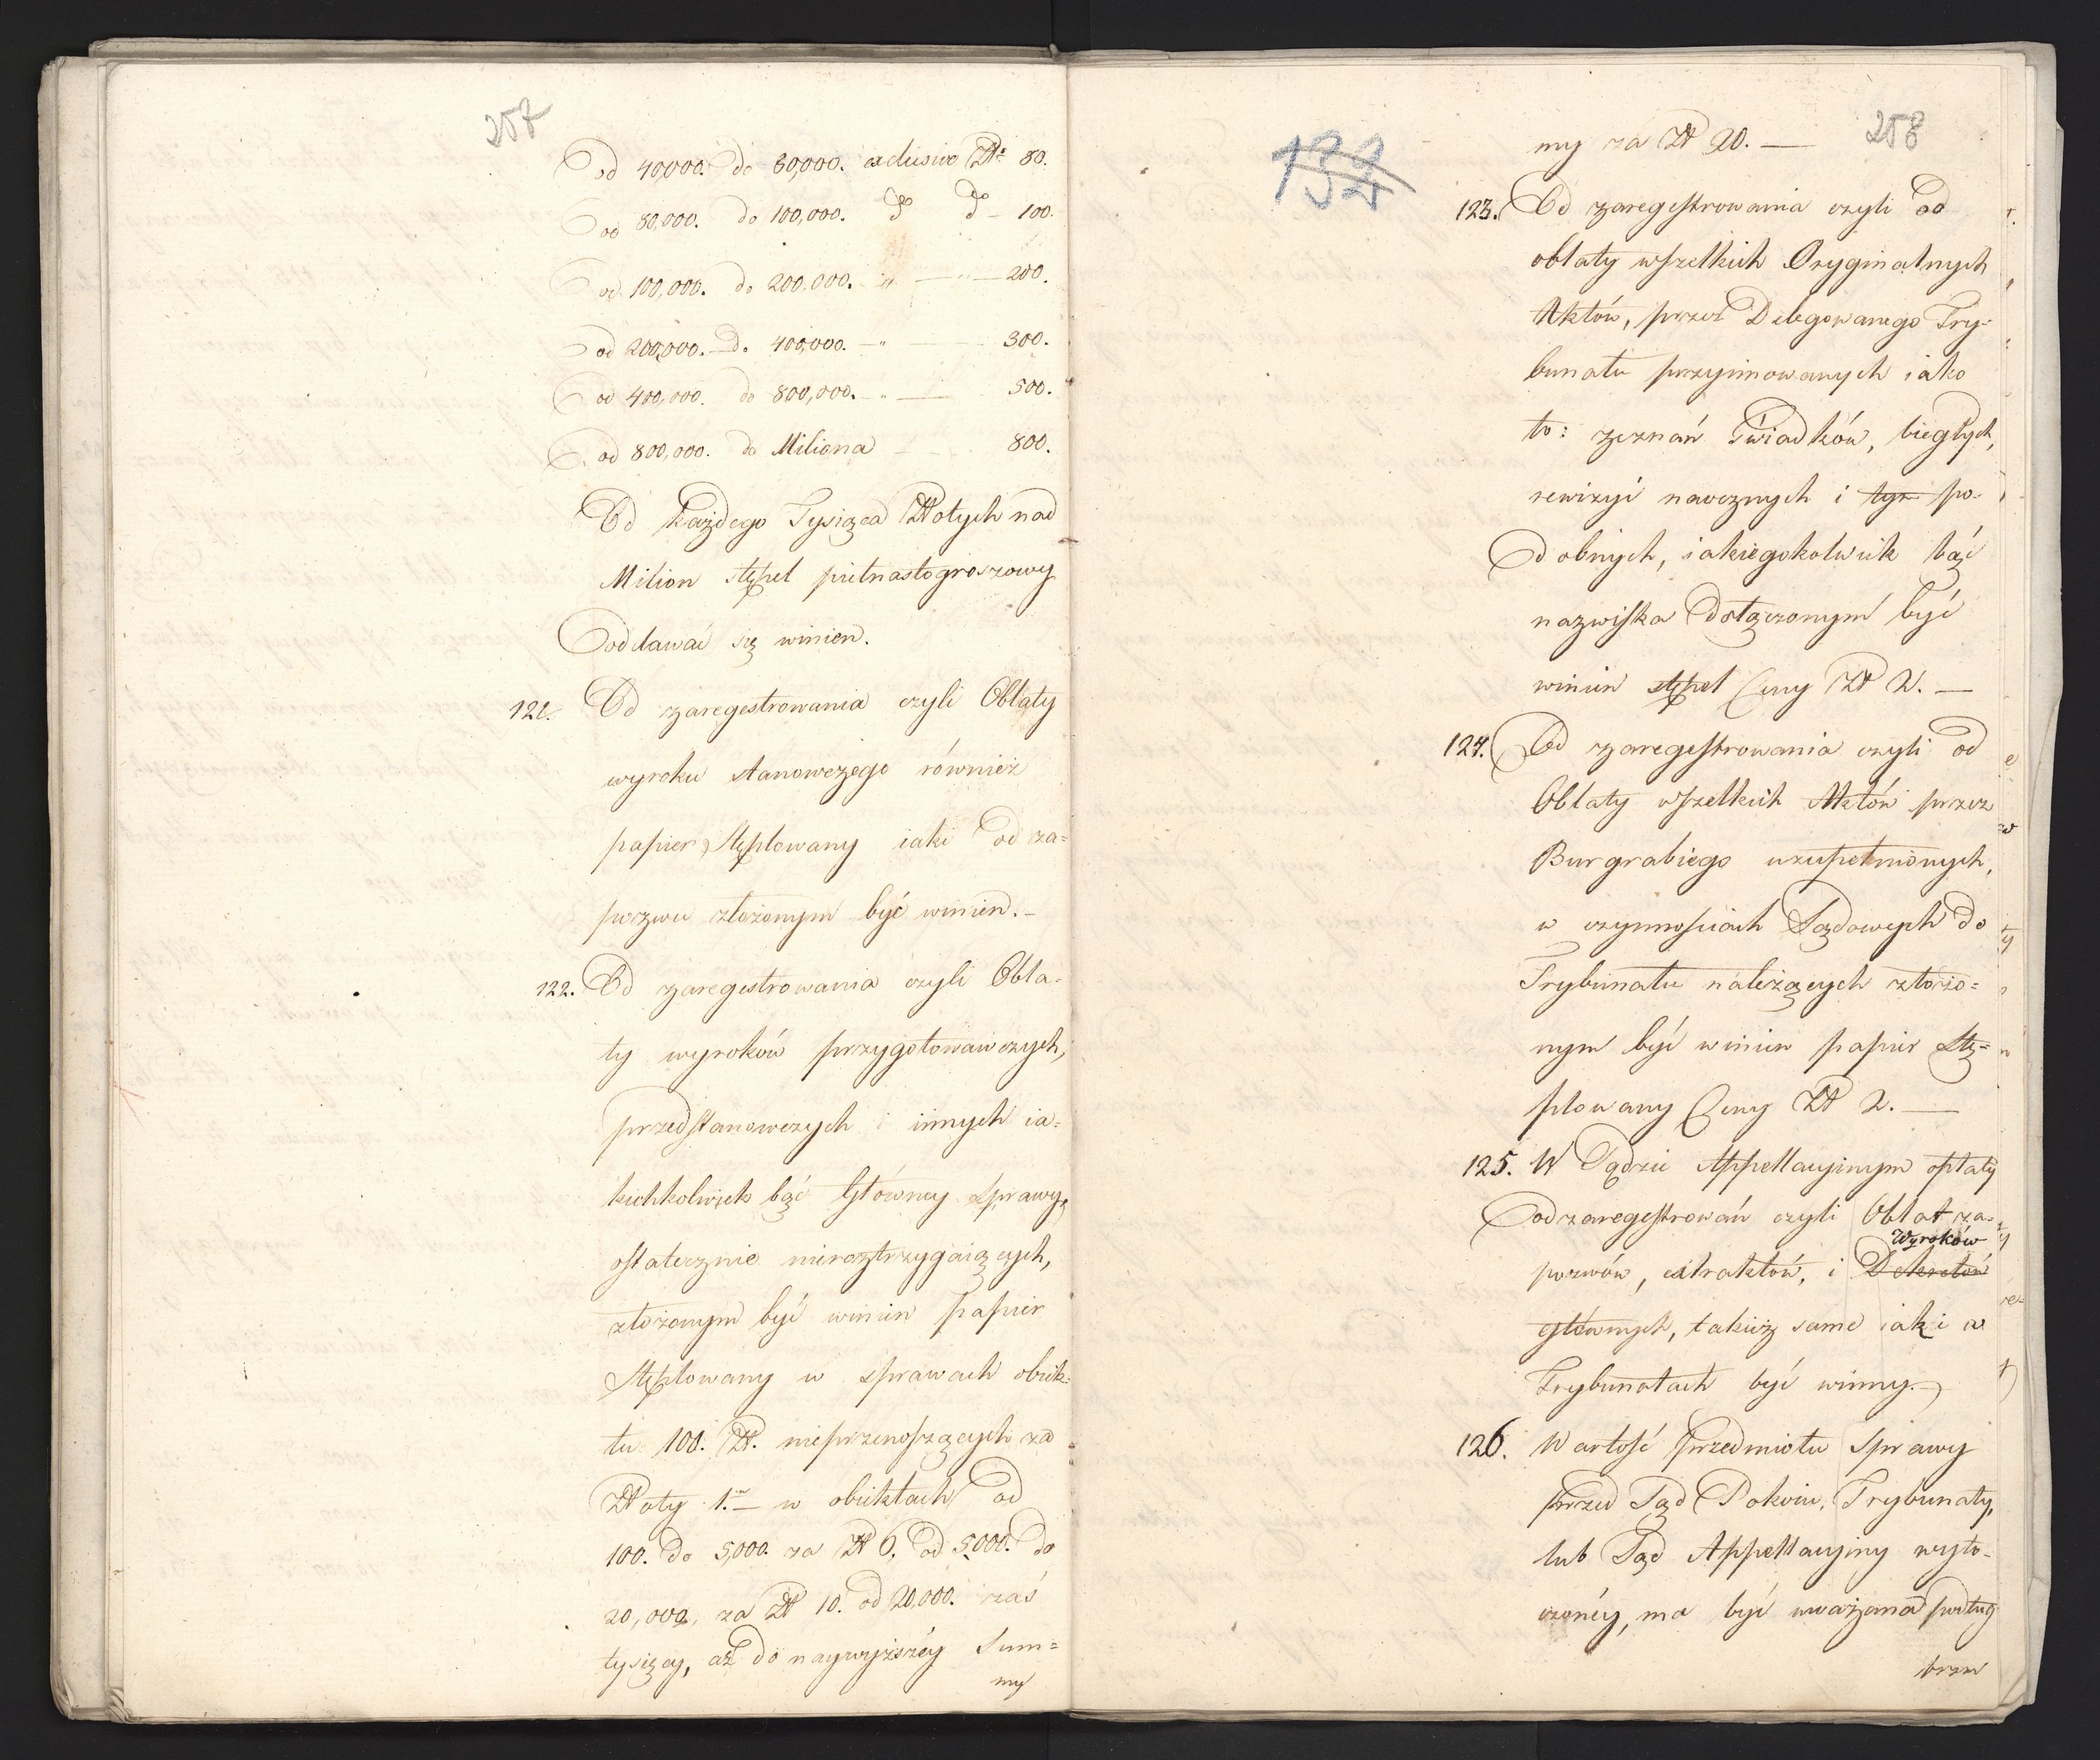 257
Od 40,000. do 80,000. exclusive Zł: 80.
od 80,000. do 100,000. do do – 100.
od 100,000. do 200,000. „ — „ — 200.
od 200,000. do 400,000. — „ — 300.
od 400,000. do 800,000. — „ — 500.
od 800,000. do Miliona — 800.
Od każdego Tysiąca Złotych nad
Milion stępel pietnastogroszowy
oddawać się winien.
121. Od zaregestrowania czyli Oblaty
wyroku stanowczego również
papier stęplowany iaki od za=
pozwu złożonym być winien. –
122. Od zaregestrowania czyli Obla-
ty wyroków przygotowawczych,
przedstanowczych i innych ia=
kichkolwiek bąć Główney sprawy,
ostatecznie nieroztrzygaiących,
złożonym być winien papier
stęplowany w sprawach obiek=
tu 100. Zł. nieprzenoszących za
Złoty 1. — w obiektach od
100. do 5,000. za Zł 6. od 5,000. do
20,000, za Zł 10. od 20,000. zaś
tysięcy, aż do naywyższéy Sum=
my
132
258
my za Zł 20. —
123. Od zaregestrowania czyli od
oblaty wszelkich Oryginalnych
Aktów, przez Delegowanego Try-
bunału przyimowanych iako
to: zeznań Świadków, biegłych,
rewizyi naocznych i tym po-
dobnych, iakiegokolwiek bąć
nazwiska dołączonym być
winien stępel Ceny Zł 2. —
124. Od zaregestrowania czyli od
Oblaty wszelkich Aktów przez
Burgrabiego uzupełnionych,
w czynnościach Sądowych do
Trybunału należących złożo=
nym być winien papier stę=
plowany Ceny Zł 2. —
125. W Sądzie Appellacyinym opłaty
od zaregestrowań czyli Oblat za-
Wyroków
pozwów, extraktów, i Dekretów
głównych, takież same iak i w
Trybunałach być winny. –
126. Wartość przedmiotu sprawy
przed Sąd Pokoiu, Trybunały,
lub Sąd Appellacyiny wyto-
czonéy, ma być uważana podług
brzm